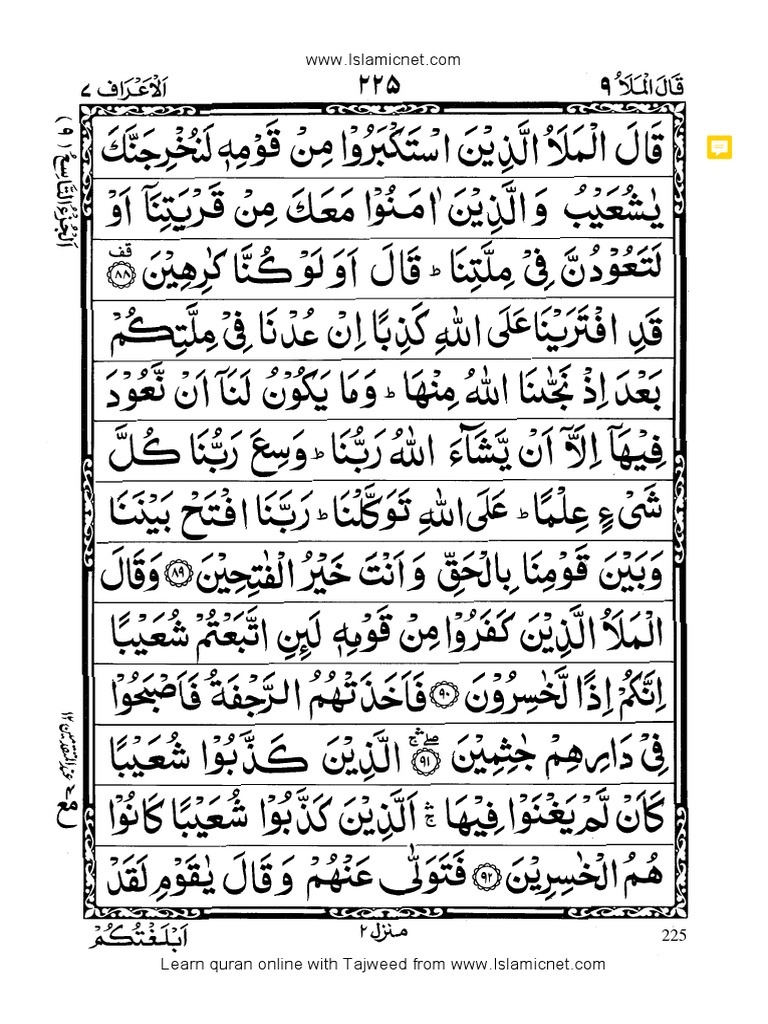 www.Islamicnet.com
قَالَ الْمَلَاُ ٩
٢٢٥
اَلْاَعْرَاف ٧
اَلْجُزْءُ التَّاسِعُ (٩)
قَالَ الْمَلَاُ الَّذِيْنَ اسْتَكْبَرُوْا مِنْ قَوْمِهٖ لَنُخْرِجَنَّكَ
يٰشُعَيْبُ وَالَّذِيْنَ اٰمَنُوْا مَعَكَ مِنْ قَرْيَتِنَاۤ اَوْ
لَتَعُوْدُنَّ فِيْ مِلَّتِنَا ؕ قَالَ اَوَلَوْ كُنَّا كٰرِهِيْنَ ۟قف ﴿٨٨﴾
قَدِ افْتَرَيْنَا عَلَى اللّٰهِ كَذِبًا اِنْ عُدْنَا فِيْ مِلَّتِكُمْ
بَعْدَ اِذْ نَجّٰىنَا اللّٰهُ مِنْهَا ؕ وَمَا يَكُوْنُ لَنَاۤ اَنْ نَّعُوْدَ
فِيْهَاۤ اِلَّاۤ اَنْ يَّشَآءَ اللّٰهُ رَبُّنَا ؕ وَسِعَ رَبُّنَا كُلَّ
شَيْءٍ عِلْمًا ؕ عَلَى اللّٰهِ تَوَكَّلْنَا ؕ رَبَّنَا افْتَحْ بَيْنَنَا
وَبَيْنَ قَوْمِنَا بِالْحَقِّ وَاَنْتَ خَيْرُ الْفٰتِحِيْنَ ﴿٨٩﴾ وَقَالَ
الْمَلَاُ الَّذِيْنَ كَفَرُوْا مِنْ قَوْمِهٖ لَىِٕنِ اتَّبَعْتُمْ شُعَيْبًا
اِنَّكُمْ اِذًا لَّخٰسِرُوْنَ ﴿٩٠﴾ فَاَخَذَتْهُمُ الرَّجْفَةُ فَاَصْبَحُوْا
فِيْ دَارِهِمْ جٰثِمِيْنَ ﴿٩١﴾ۚۖ الَّذِيْنَ كَذَّبُوْا شُعَيْبًا
كَاَنْ لَّمْ يَغْنَوْا فِيْهَا ۛۚ اَلَّذِيْنَ كَذَّبُوْا شُعَيْبًا كَانُوْا
هُمُ الْخٰسِرِيْنَ ﴿٩٢﴾ فَتَوَلّٰى عَنْهُمْ وَقَالَ يٰقَوْمِ لَقَدْ
اَبْلَغْتُكُمْ
منزل ٢
225
Learn quran online with Tajweed from www.Islamicnet.com